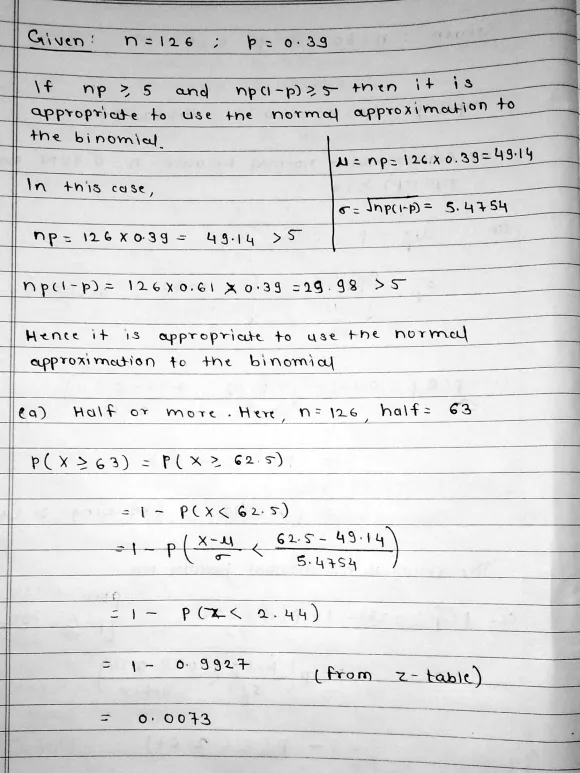 Given: n = 126 ; p = 0.39
If np ≥ 5 and np(1-p) ≥ 5 then it is
appropriate to use the normal approximation to
the binomial.
μ = np = 126 x 0.39 = 49.14
σ = √np(1-p) = 5.4754
In this case,
np = 126 x 0.39 = 49.14 > 5
np(1-p) = 126 x 0.61 x 0.39 = 29.98 > 5
Hence it is appropriate to use the normal
approximation to the binomial
(a) Half or more. Here, n = 126, half = 63
P(X ≥ 63) = P(X ≥ 62.5)
= 1 - P(X < 62.5)
= 1 - P(X-μ/σ < 62.5 - 49.14/5.4754)
= 1 - P(Z < 2.44)
= 1 - 0.9927 (from z-table)
= 0.0073